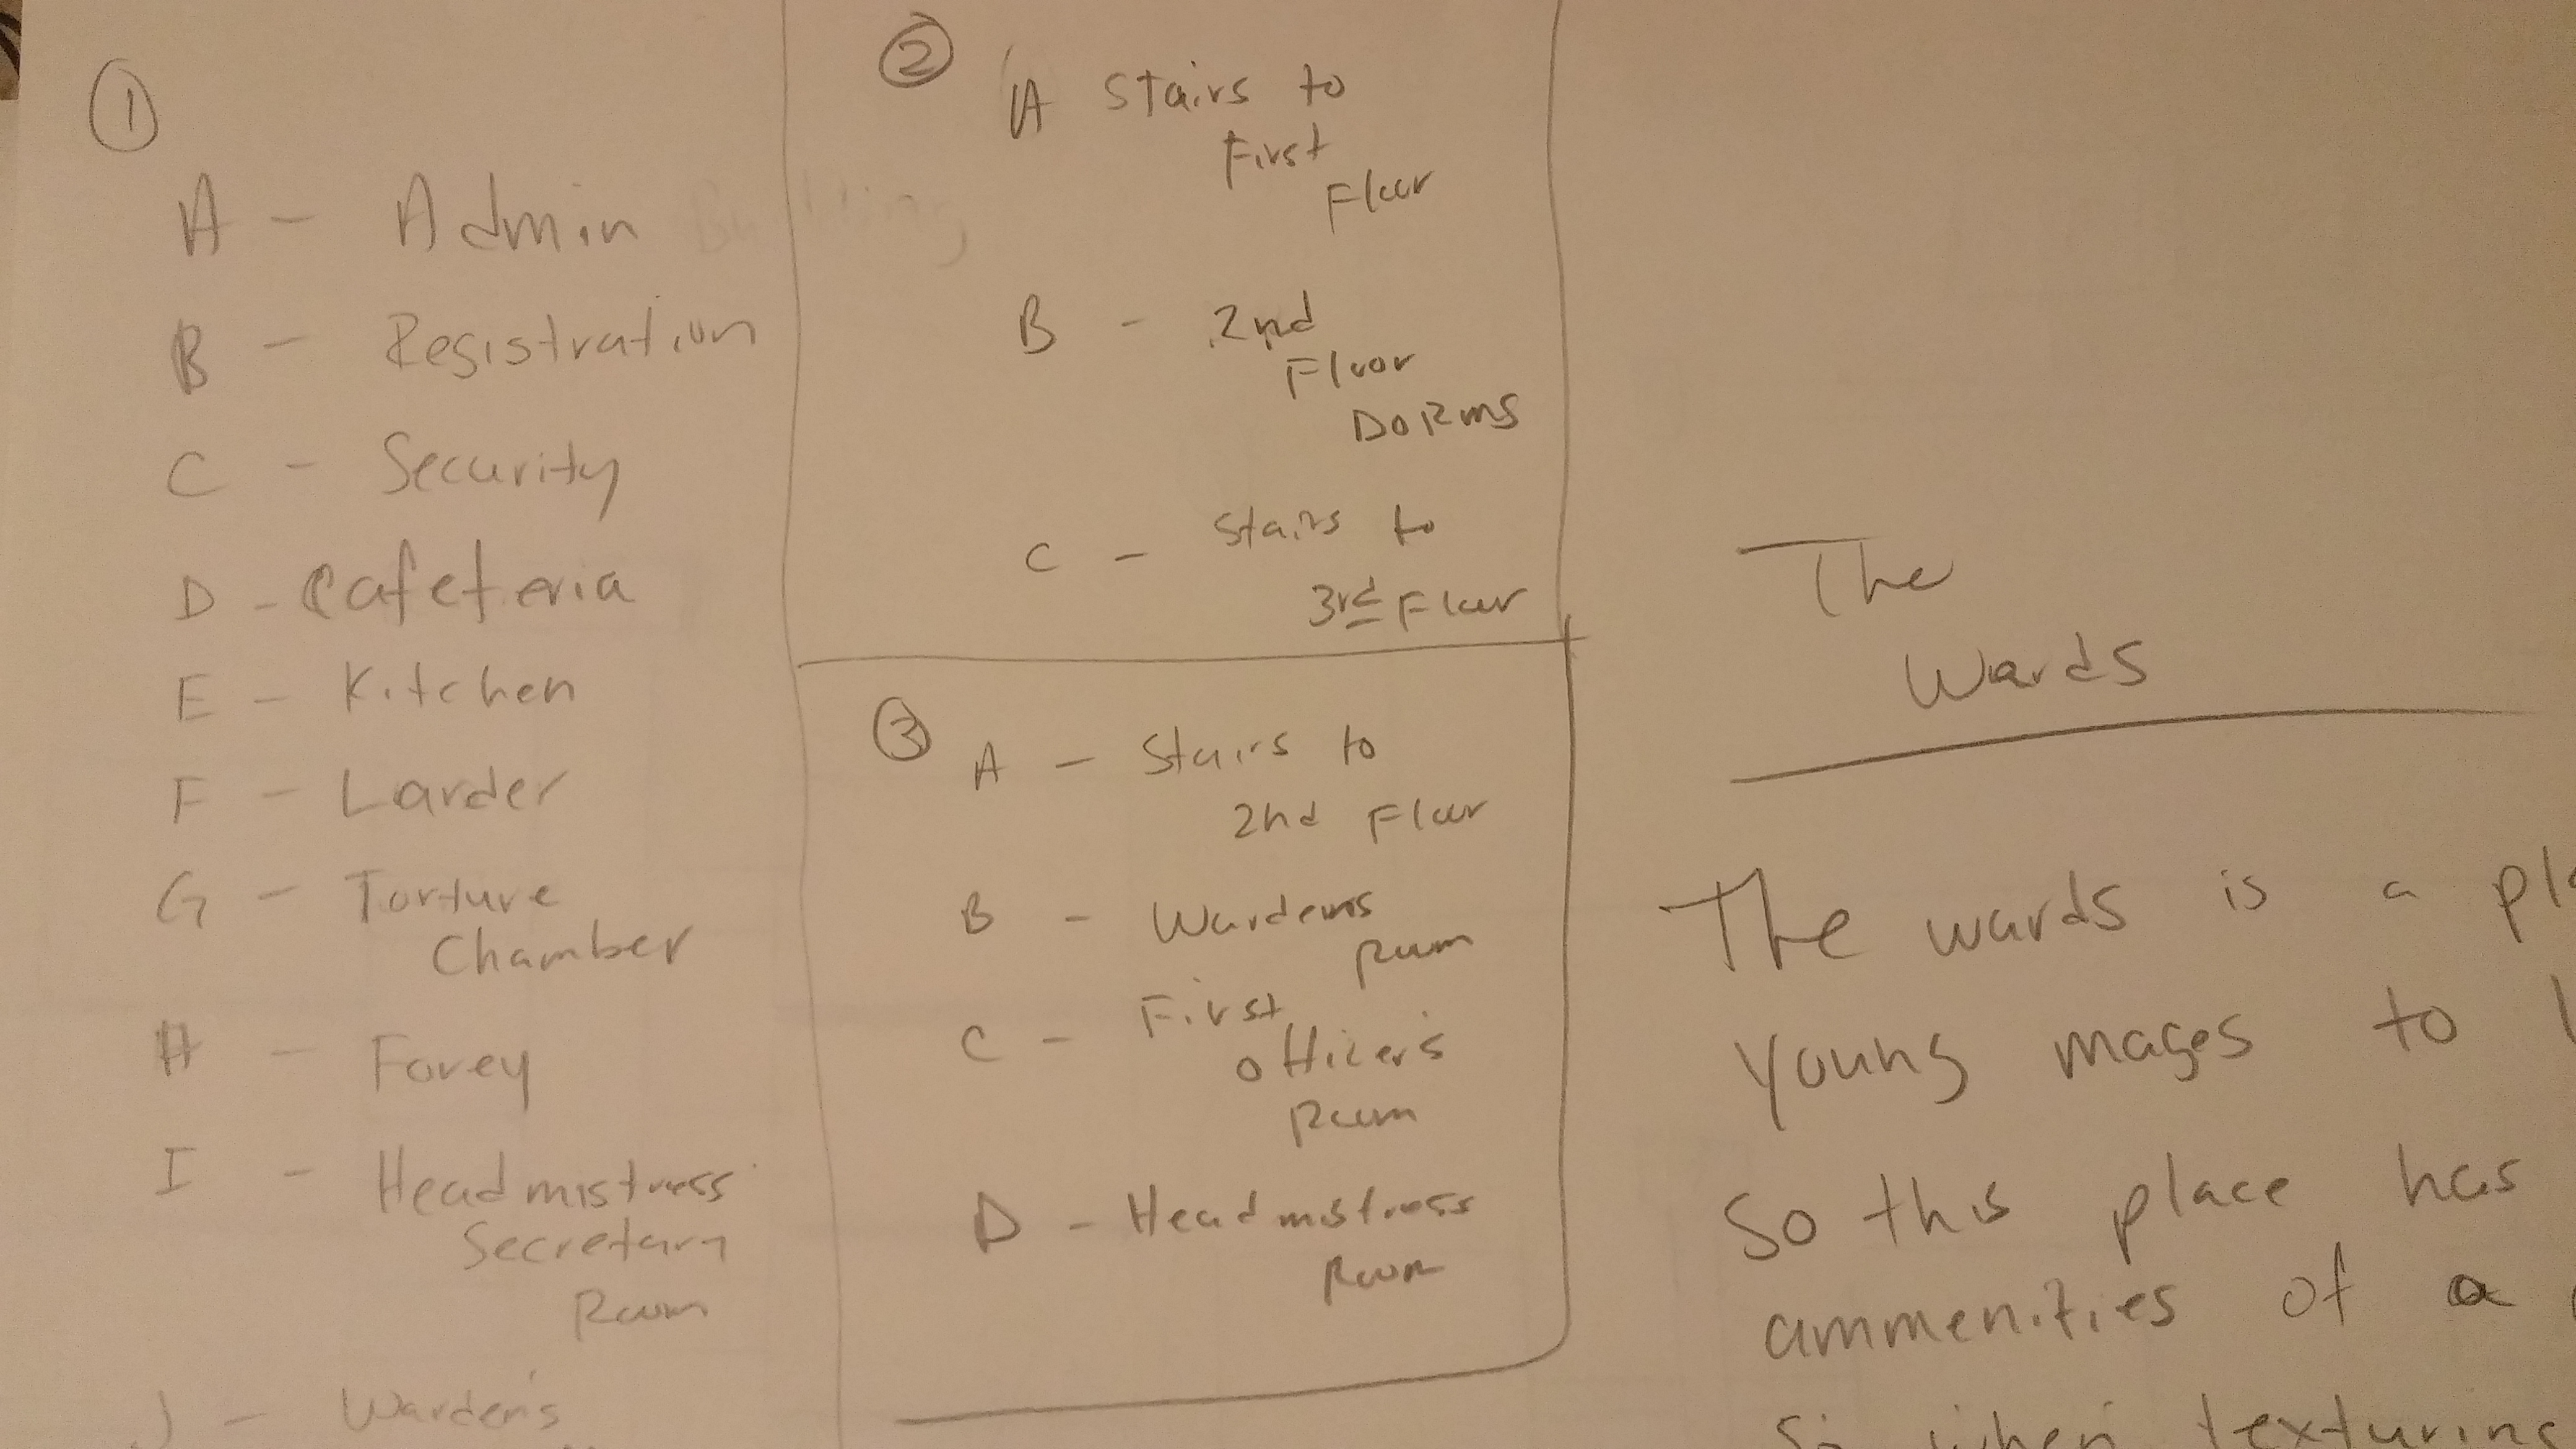 ①
A - Admin
B - Registration
C - Security
D - Cafeteria
E - Kitchen
F - Larder
G - Torture
Chamber
H - Forey
I - Headmistress
Secretary
Room
J - Warden's
②
A Stairs to
First
Floor
B - 2nd
Floor
DORms
C - Stairs to
3rd Floor
③
A - Stairs to
2nd Floor
B - Wardens
Room
C - First
officer's
Room
D - Headmistress
Room
The
Wards
The wards is a
young mages to
So this place has
ammenities of a
when texturing